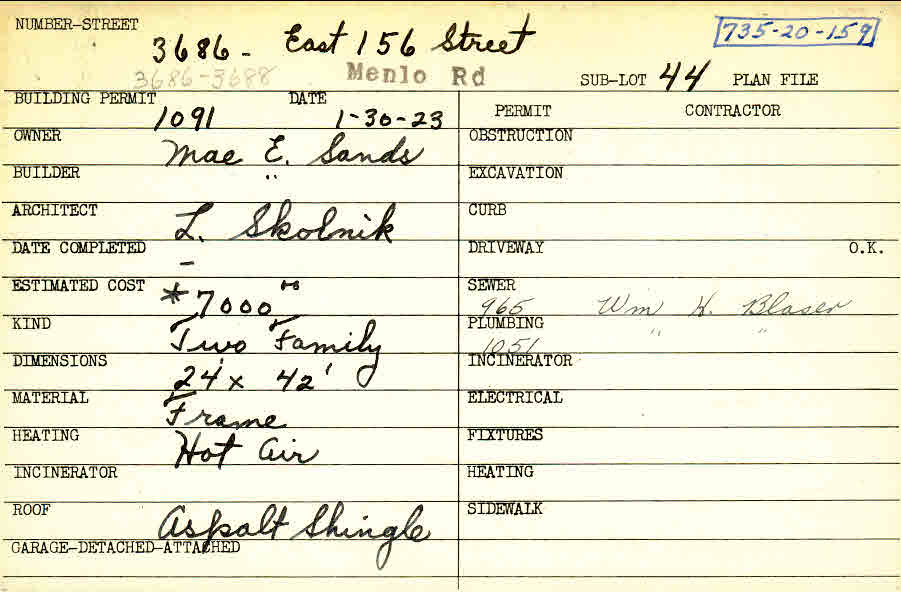 NUMBER-STREET
3686 - East 156 Street
735-20-159
3686-3688
Menlo Rd
SUB-LOT 44 PLAN FILE
BUILDING PERMIT DATE
1091 1-30-23
PERMIT CONTRACTOR
OWNER Mae E. Sands
OBSTRUCTION
BUILDER "
EXCAVATION
ARCHITECT L. Skolnik
CURB
DATE COMPLETED -
DRIVEWAY O.K.
ESTIMATED COST
SEWER
965 Wm H. Blaser
KIND Two Family
PLUMBING " "
1051
DIMENSIONS 24 x 42'
INCINERATOR
MATERIAL Frame
ELECTRICAL
HEATING Hot Air
FIXTURES
INCINERATOR
HEATING
ROOF Aspalt Shingle
SIDEWALK
GARAGE-DETACHED-ATTACHED